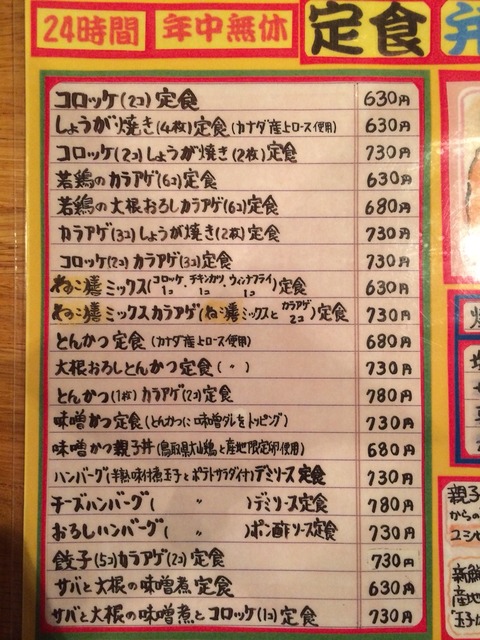 24時間 年中無休 定食 弁
コロッケ(2コ)定食 630円
しょうが焼き(4枚)定食(カナダ産上ロース使用) 630円
コロッケ(2コ)しょうが焼き(2枚)定食 730円
若鶏のカラアゲ(6コ)定食 630円
若鶏の大根おろしカラアゲ(6コ)定食 680円
カラアゲ(3コ)しょうが焼き(2枚)定食 730円
コロッケ(2コ)カラアゲ(3コ)定食 730円
ねこ膳ミックス(コロッケ1コ チキンカツ1コ ウィンナフライ1コ)定食 630円
ねこ膳ミックスカラアゲ(ねこ膳ミックスとカラアゲ2コ)定食 730円
とんかつ定食(カナダ産上ロース使用) 680円
大根おろしとんかつ定食(〃) 730円
とんかつ(1枚)カラアゲ(2コ)定食 780円
味噌かつ定食(とんかつに味噌ダレをトッピング) 730円
味噌かつ親子丼(鳥取県大山鶏と産地限定卵使用) 680円
ハンバーグ(半熟味付煮玉子とポテトサラダ付)デミソース定食 730円
チーズハンバーグ(〃)デミソース定食 780円
おろしハンバーグ(〃)ポン酢ソース定食 730円
餃子(5コ)カラアゲ(2コ)定食 730円
サバと大根の味噌煮定食 630円
サバと大根の味噌煮とコロッケ(1コ)定食 730円
親子
からの
新鮮
産地
玉子